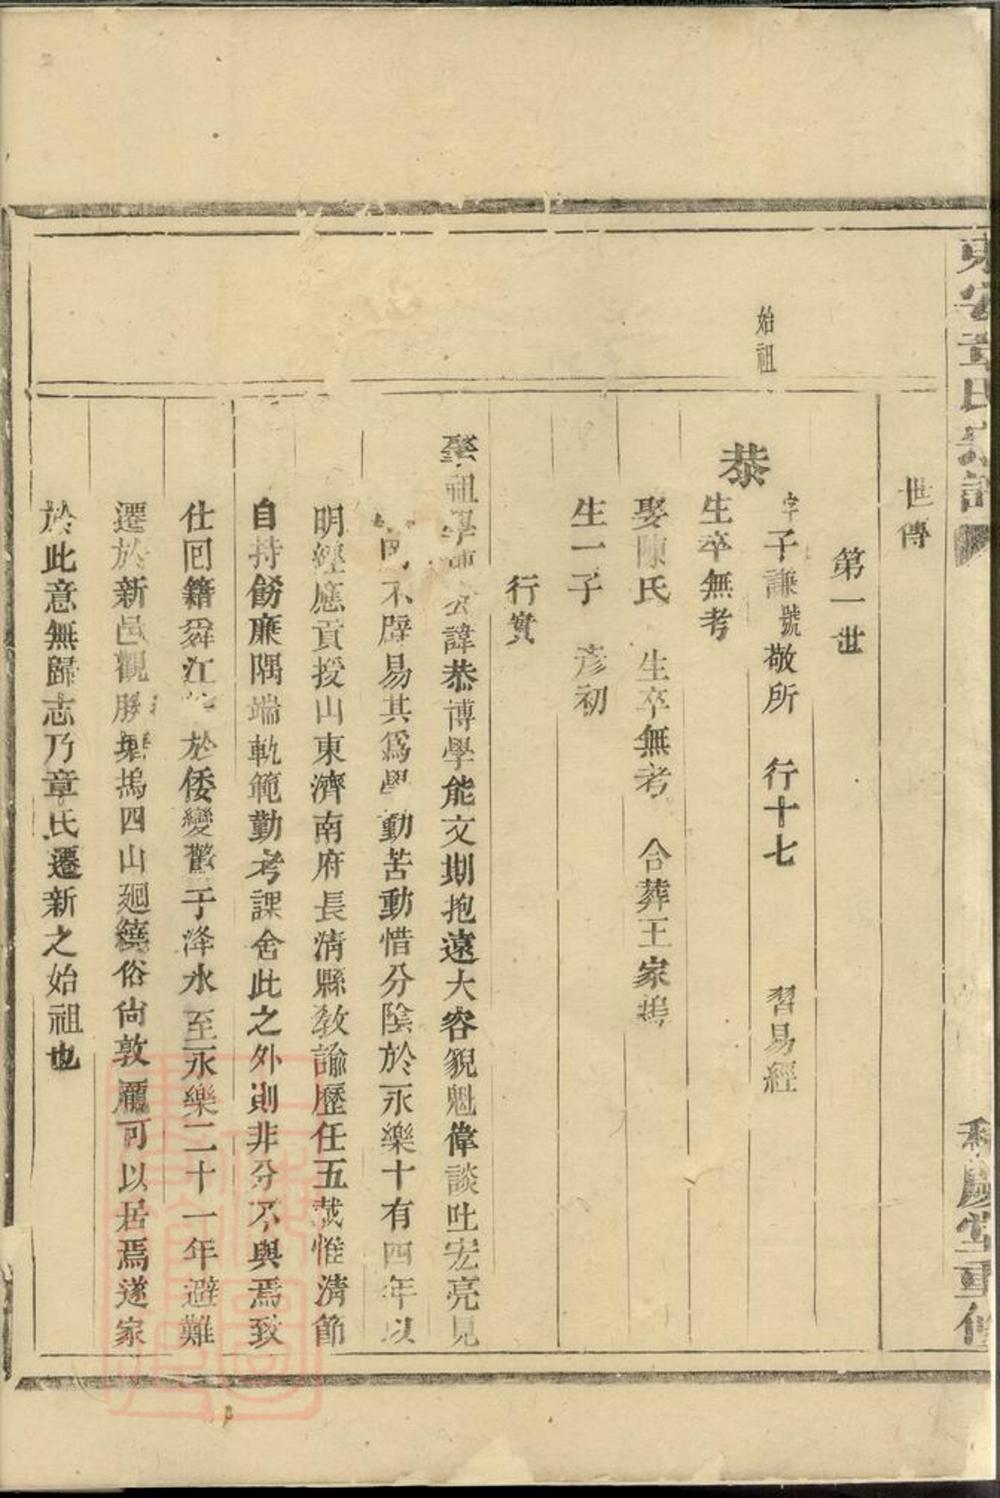 東安章氏宗譜
慶堂重修
世傳
第一世
始祖
恭 字子謙號敬所 行十七 習易經
生卒無考
娶陳氏 生卒無考 合葬王家塢
生一子 彥初
行實
祖學諱恭博學能文期抱遠大容貌魁偉談吐宏亮見
不辟易其爲學動苦動惜分陰於永樂十有四年以
明經應貢授山東濟南府長清縣教諭歷任五載惟清節
自持飭廉隅端軌範勤考課舍此之外則非分不與焉致
仕囘籍舜江於倭變驚于洚水至永樂二十一年避難
遷於新邑觀勝塢四山廻繞俗尚敦龐可以居焉遂家
於此意無歸志乃章氏遷新之始祖也